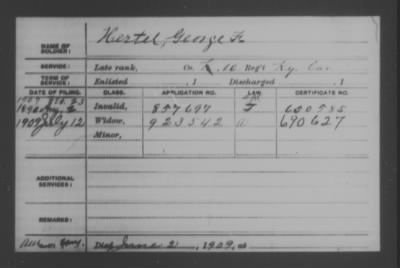 NAME OF SOLDIER: Hertel, George F.
SERVICE: Late rank, Co. K, 10 Reg't Ky. Cav.
TERM OF SERVICE: Enlisted , 1 Discharged , 1
DATE OF FILING. CLASS. APPLICATION NO. LAW. CERTIFICATE NO.
Invalid, 857697 650585
1909 July 12 Widow, 923542 690627
Minor,
ADDITIONAL SERVICES:
REMARKS:
Died June 2, 1909, at